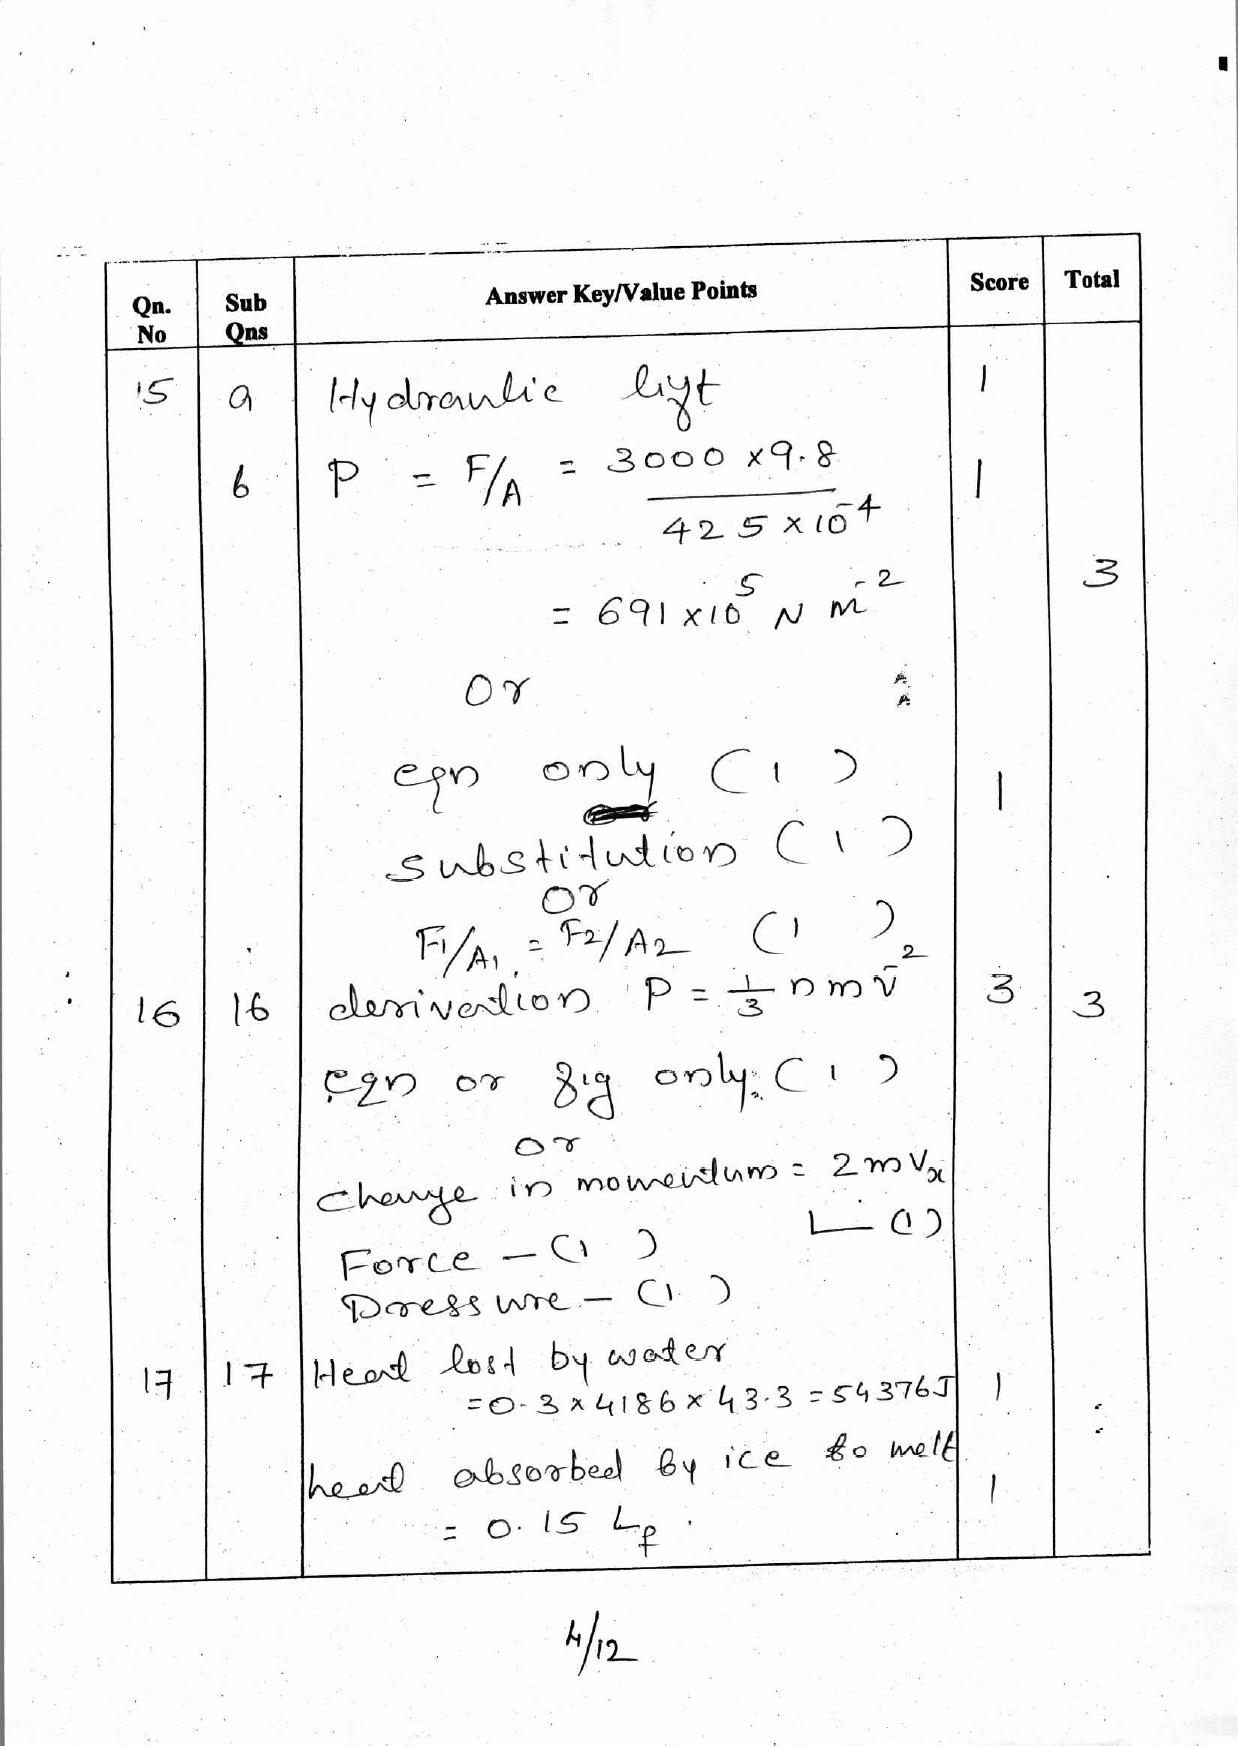 Qn. No Sub Qns Answer Key/Value Points Score Total
15 a Hydraulic lift 1
b P = F/A = 3000 x 9.8 1
425 x 10^-4
3
= 691 x 10^5 N m^-2
Or
eqn only (1)
1
substitution (1)
or
F1/A1 = F2/A2 (1)
16 16 derivation P = 1/3 n m v̄^2 3 3
eqn or fig only (1)
or
Change in momentum = 2mVx
(1)
Force - (1)
Pressure - (1)
17 17 Heat lost by water
= 0.3 x 4186 x 43.3 = 54376J 1
heat absorbed by ice to melt
1
= 0.15 Lf.
4/12